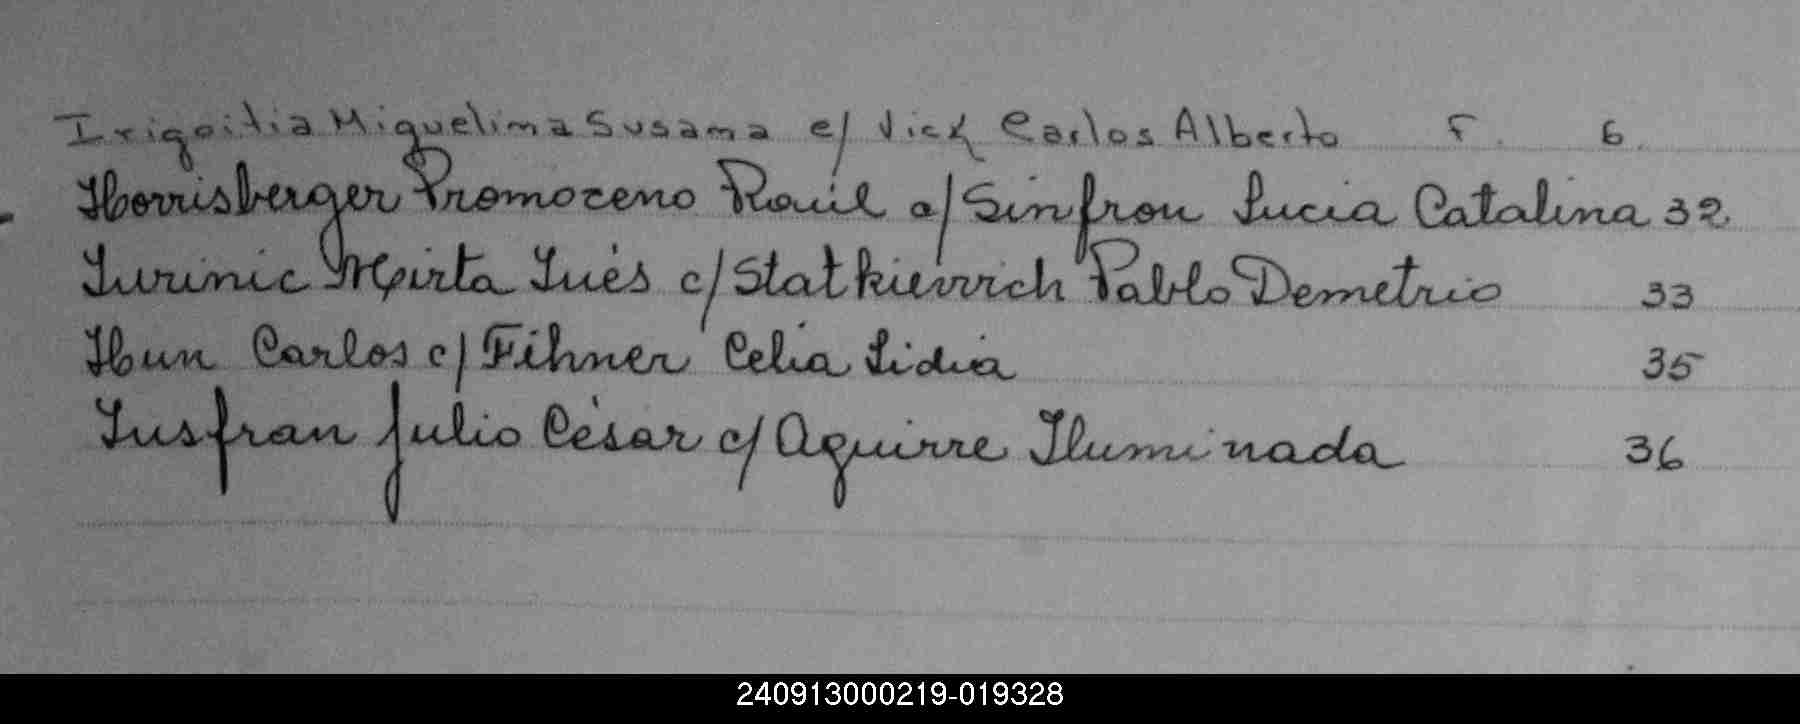 Irigoitia Miguelina Susana c/ Vick Carlos Alberto F. 6.
Horrisberger Promoceno Raúl c/ Sinfron Lucia Catalina 32
Jurinic Mirta Inés c/ Statkievvich Pablo Demetrio 33
Hun Carlos c/ Fihner Celia Lidia 35
Insfran Julio César c/ Aguirre Iluminada 36
240913000219-019328